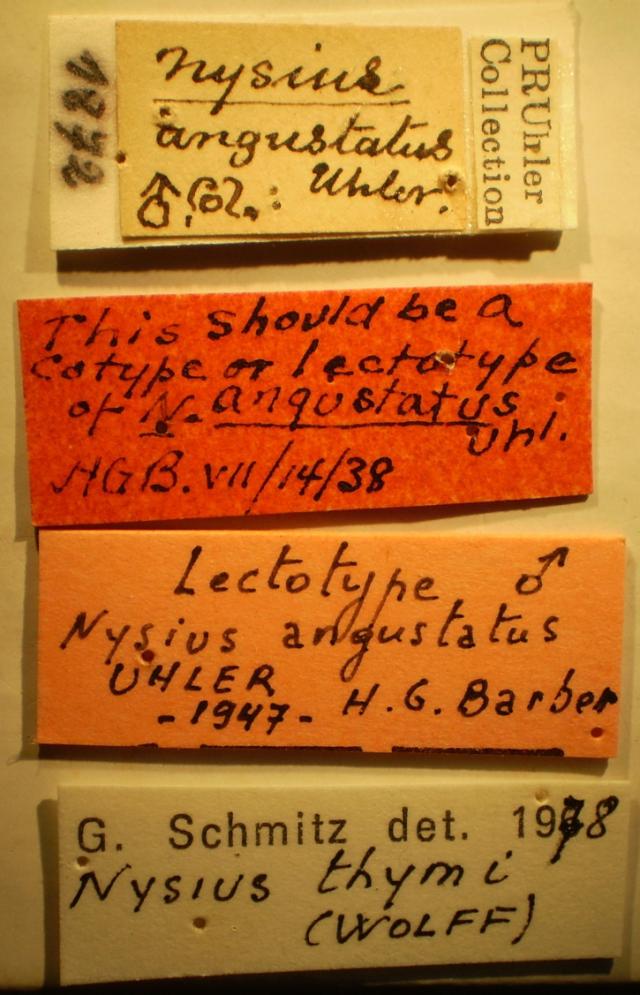 1872
Nysius
angustatus
♂, Col.: Uhler.
PRUhler
Collection
This should be a
cotype or lectotype
of N. angustatus
Uhl.
HGB. VII/14/38
Lectotype ♂
Nysius angustatus
UHLER
-1947- H. G. Barber
G. Schmitz det. 1978
Nysius thymi
(WOLFF)